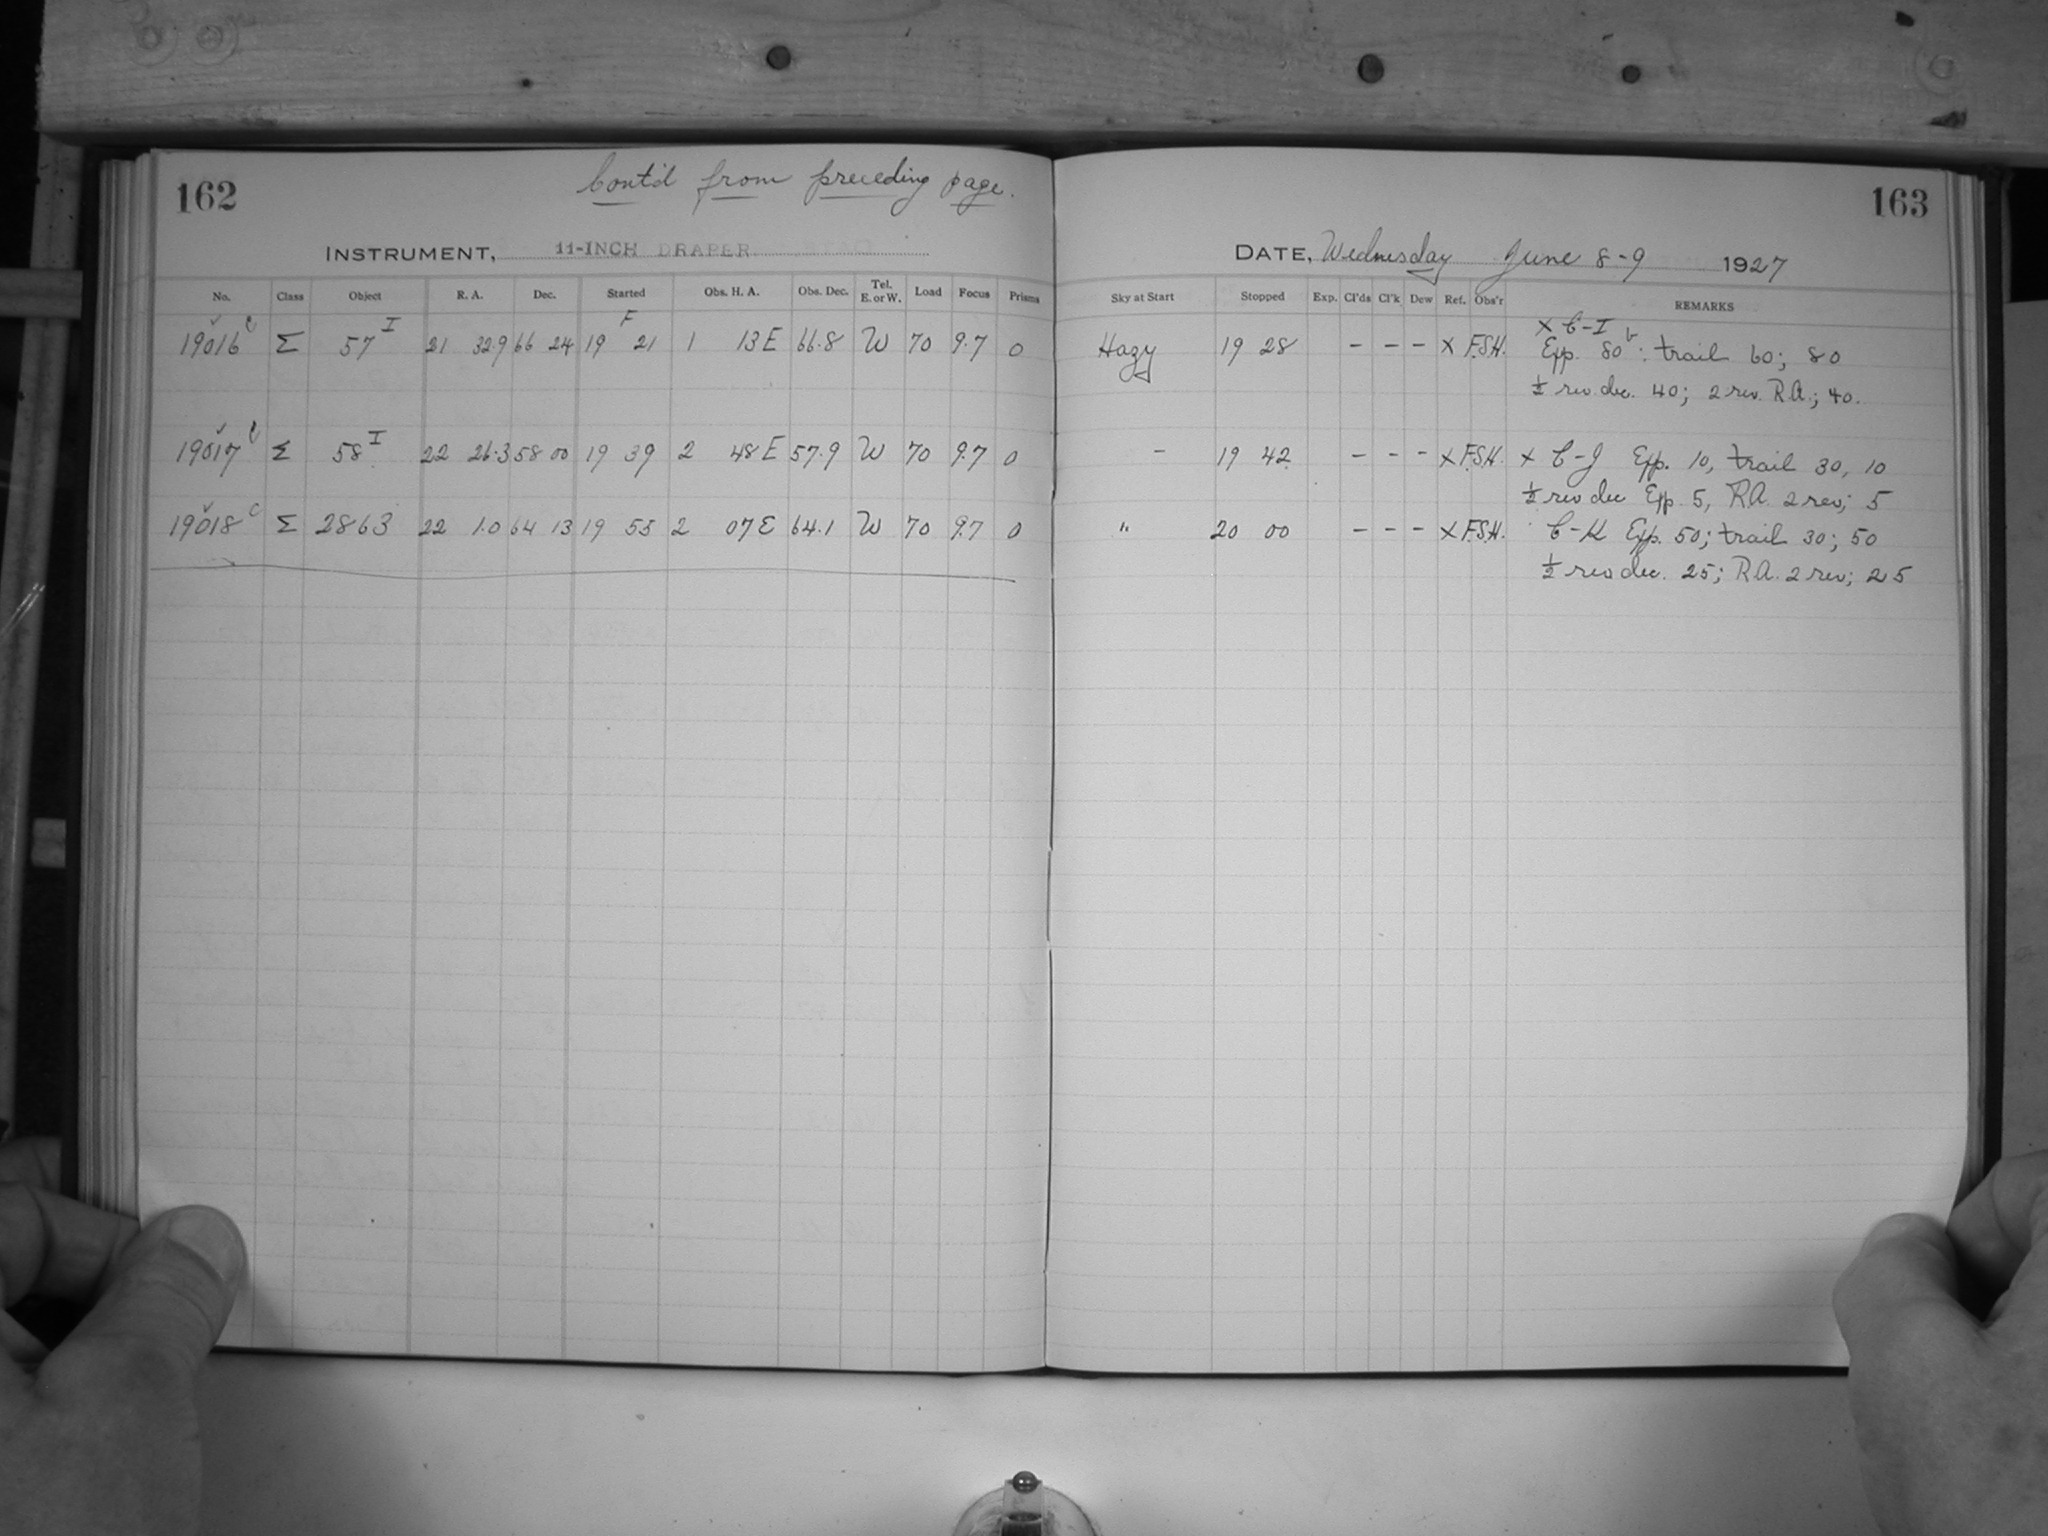 162
Cont'd from preceding page.
INSTRUMENT, 11-INCH DRAPER
No. Class Object R. A. Dec. Started Obs. H. A. Obs. Dec. Tel. E. or W. Load Focus Prisms
19016 c Σ 57 I 21 32.9 66 24 19 F 21 1 13 E 66.8 W 70 9.7 0
19017 c Σ 58 I 22 26.3 58 00 19 39 2 48 E 57.9 W 70 9.7 0
19018 c Σ 2863 22 1.0 64 13 19 55 2 07 E 64.1 W 70 9.7 0
163
DATE, Wednesday June 8-9 1927
Sky at Start Stopped Exp. Cl'ds Cl'k Dew Ref. Obs'r REMARKS
x C-I
Hazy 19 28 - - - x F.S.H. Exp. 80; trail 60; 80
½ rev dec. 40; 2 rev. R.A.; 40.
- 19 42 - - - x F.S.H. x C-J Exp. 10, trail 30, 10
½ rev dec Exp. 5, R.A. 2 rev; 5
" 20 00 - - - x F.S.H. C-K Exp. 50; trail 30; 50
½ rev dec. 25; R.A. 2 rev; 25